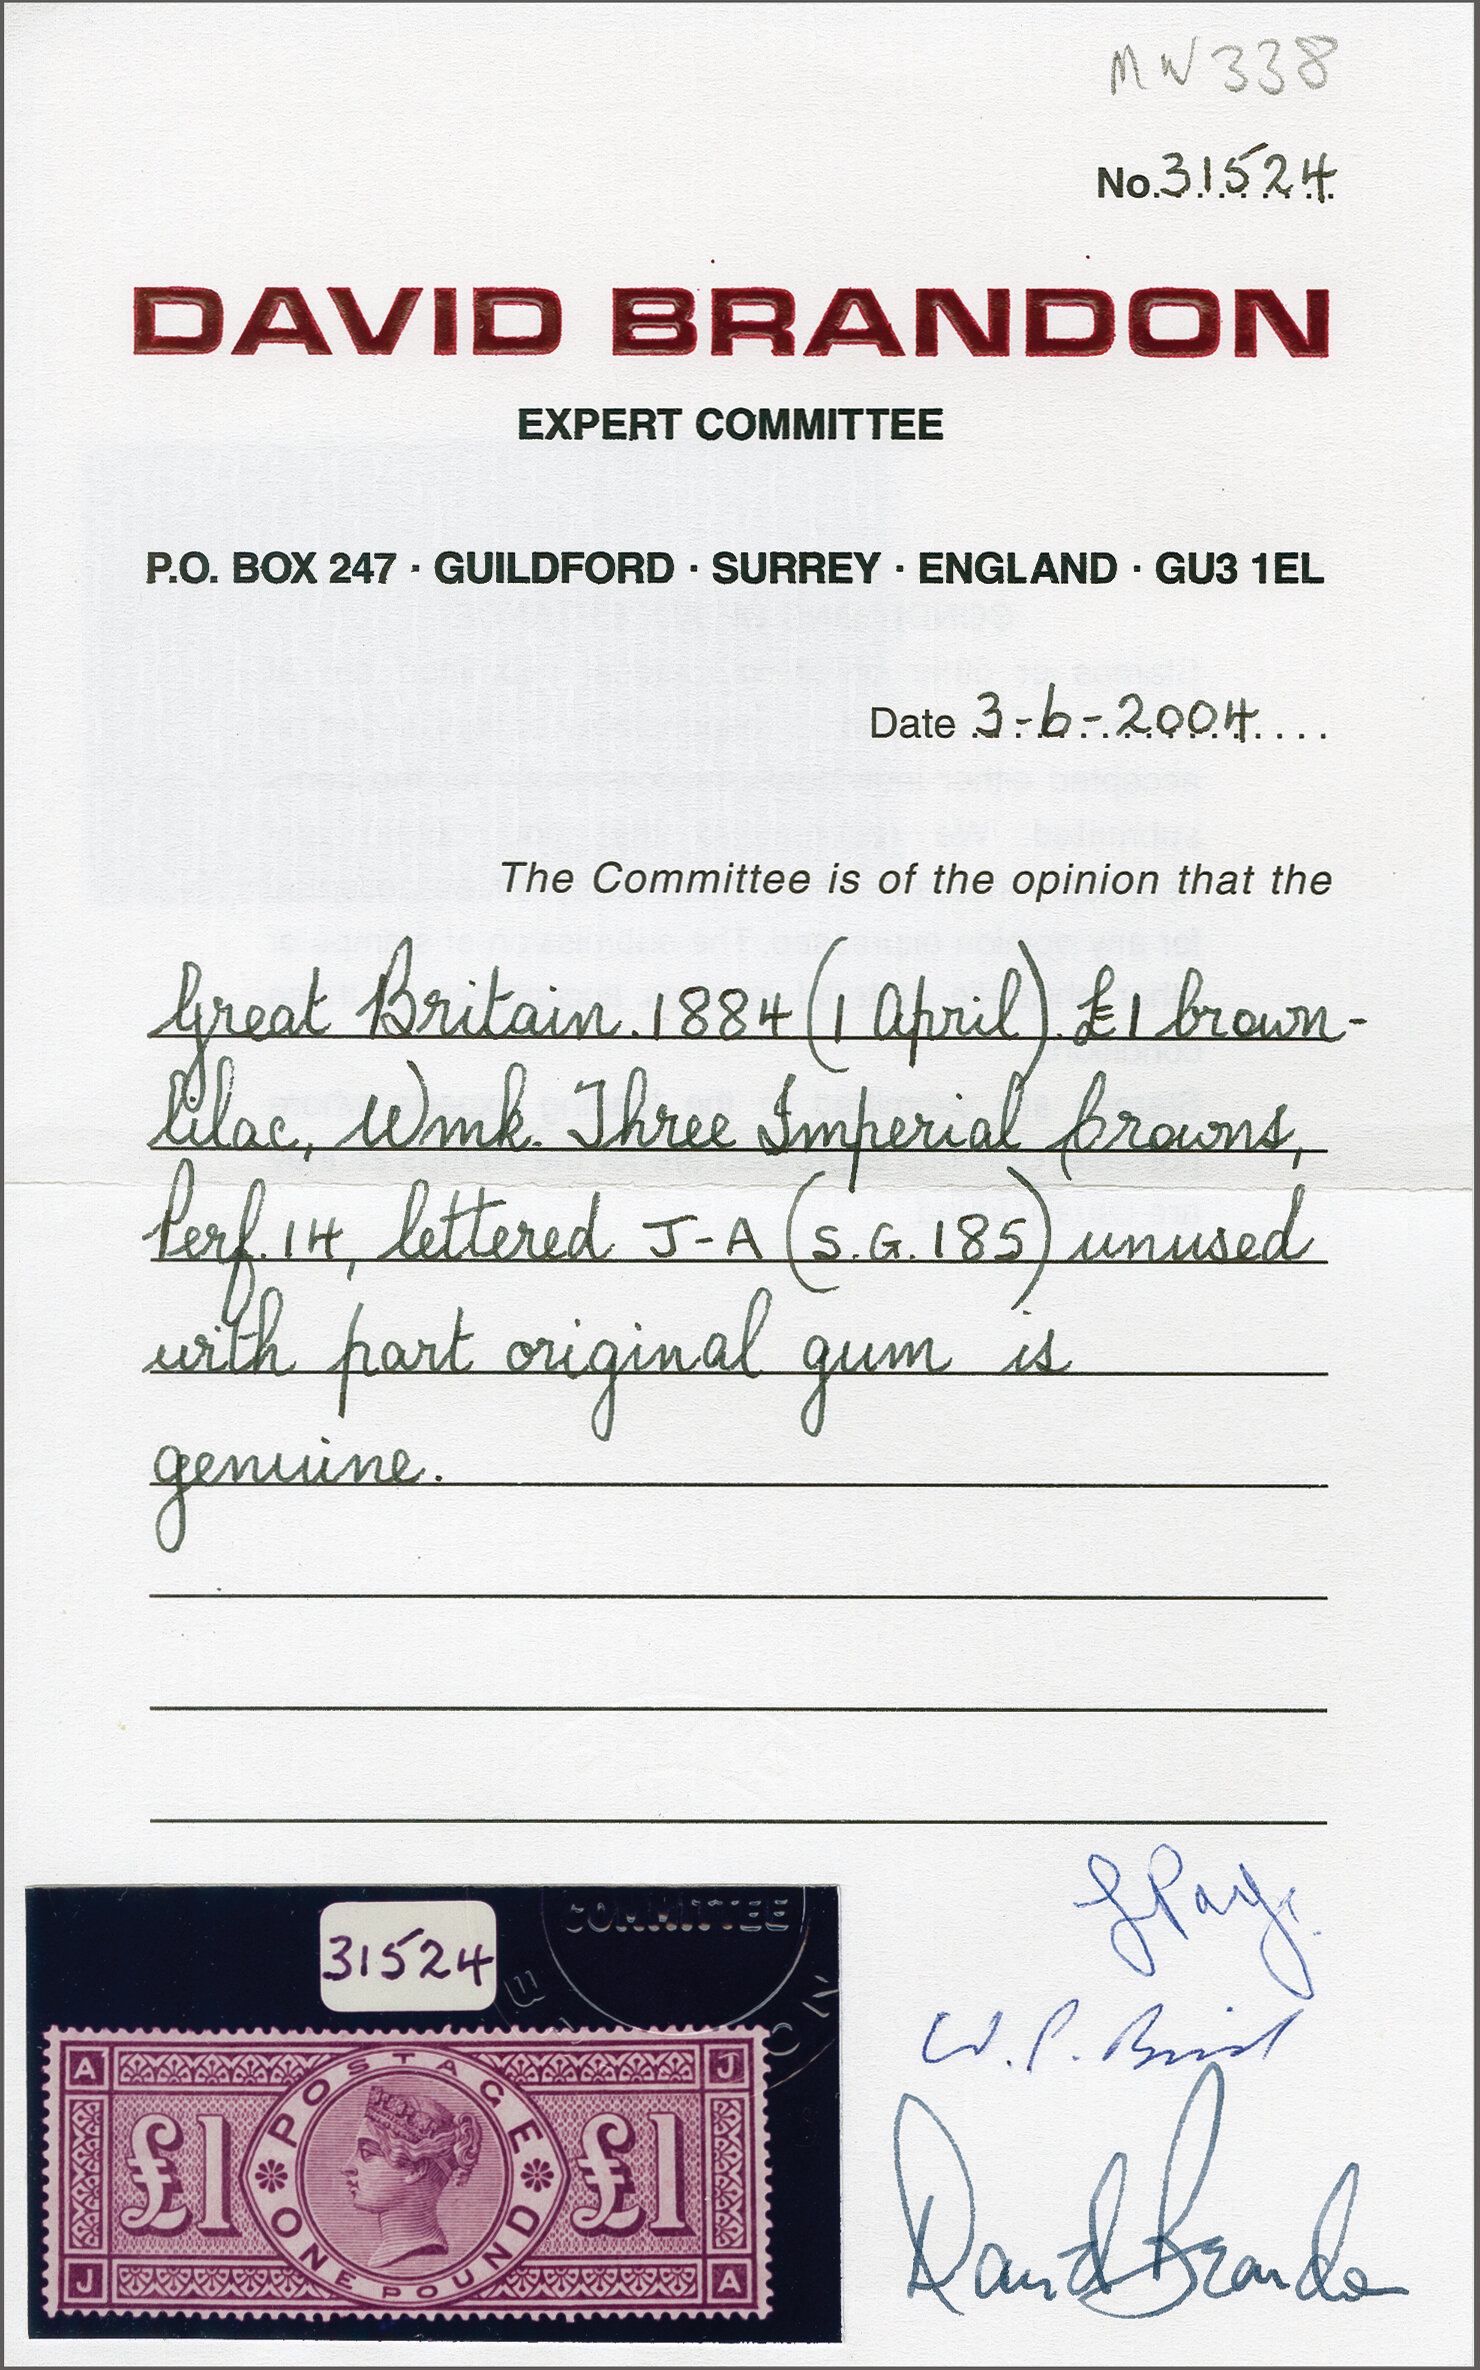 MW 338
No. 31524
DAVID BRANDON
EXPERT COMMITTEE
P.O. BOX 247 · GUILDFORD · SURREY · ENGLAND · GU3 1EL
Date 3-6-2004
The Committee is of the opinion that the
Great Britain. 1884 (1 April). £1 brown-
lilac, Wmk. Three Imperial Crowns,
Perf. 14, lettered J-A (S.G. 185) unused
with part original gum is
genuine.
COMMITTEE
31524
A J
POSTAGE
£1 £1
ONE POUND
J A
David Brandon